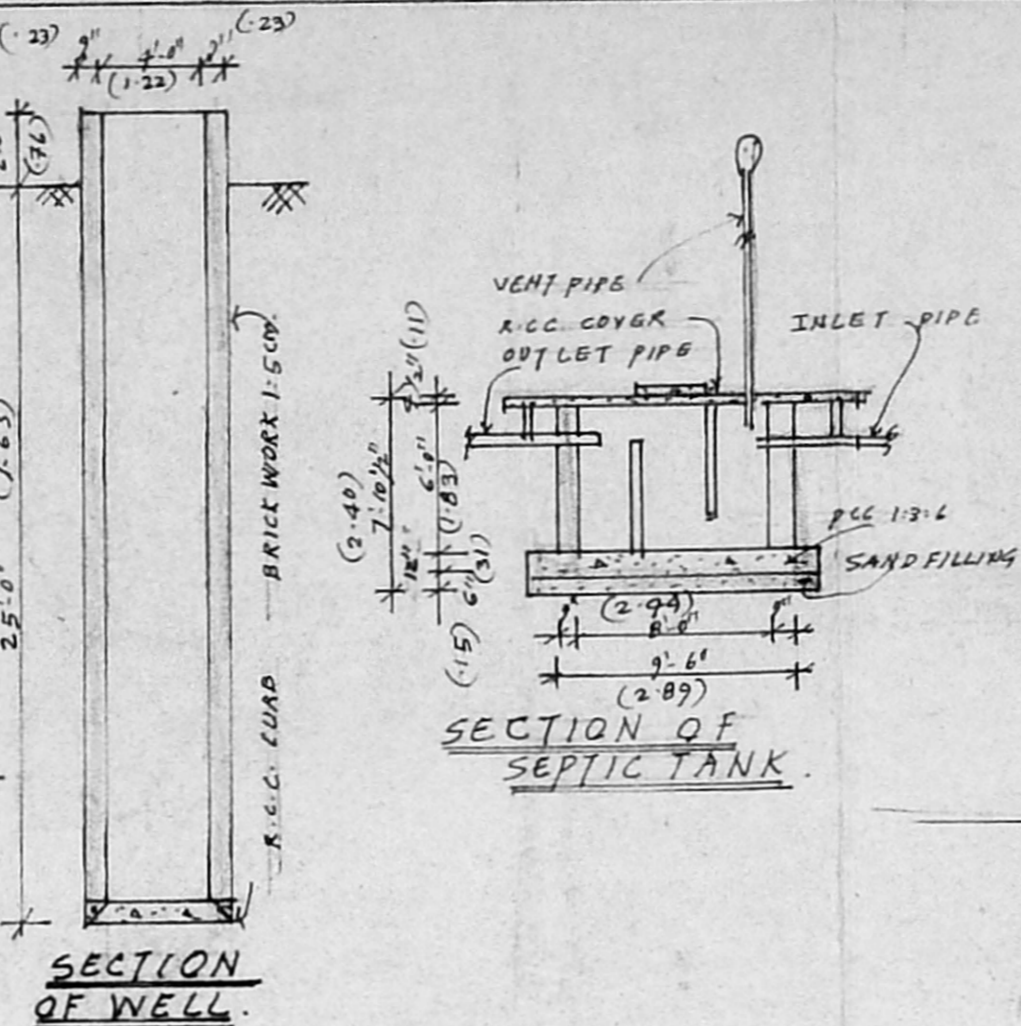 (·23)
9"
4'-0"
9"
(·23)
(1·22)
(·76)
25'-0"
BRICK WORK 1:5 cm.
R.C.C. CURB
SECTION
OF WELL.
VENT PIPE
R.C.C. COVER
OUTLET PIPE
INLET PIPE
4½" (·11)
6'-0"
(1·83)
7'-10½"
(2·40)
12"
(31)
6"
(·15)
PCC 1:3:6
SAND FILLING
9"
(2·44)
8'-0"
9"
9'-6"
(2·89)
SECTION OF
SEPTIC TANK.